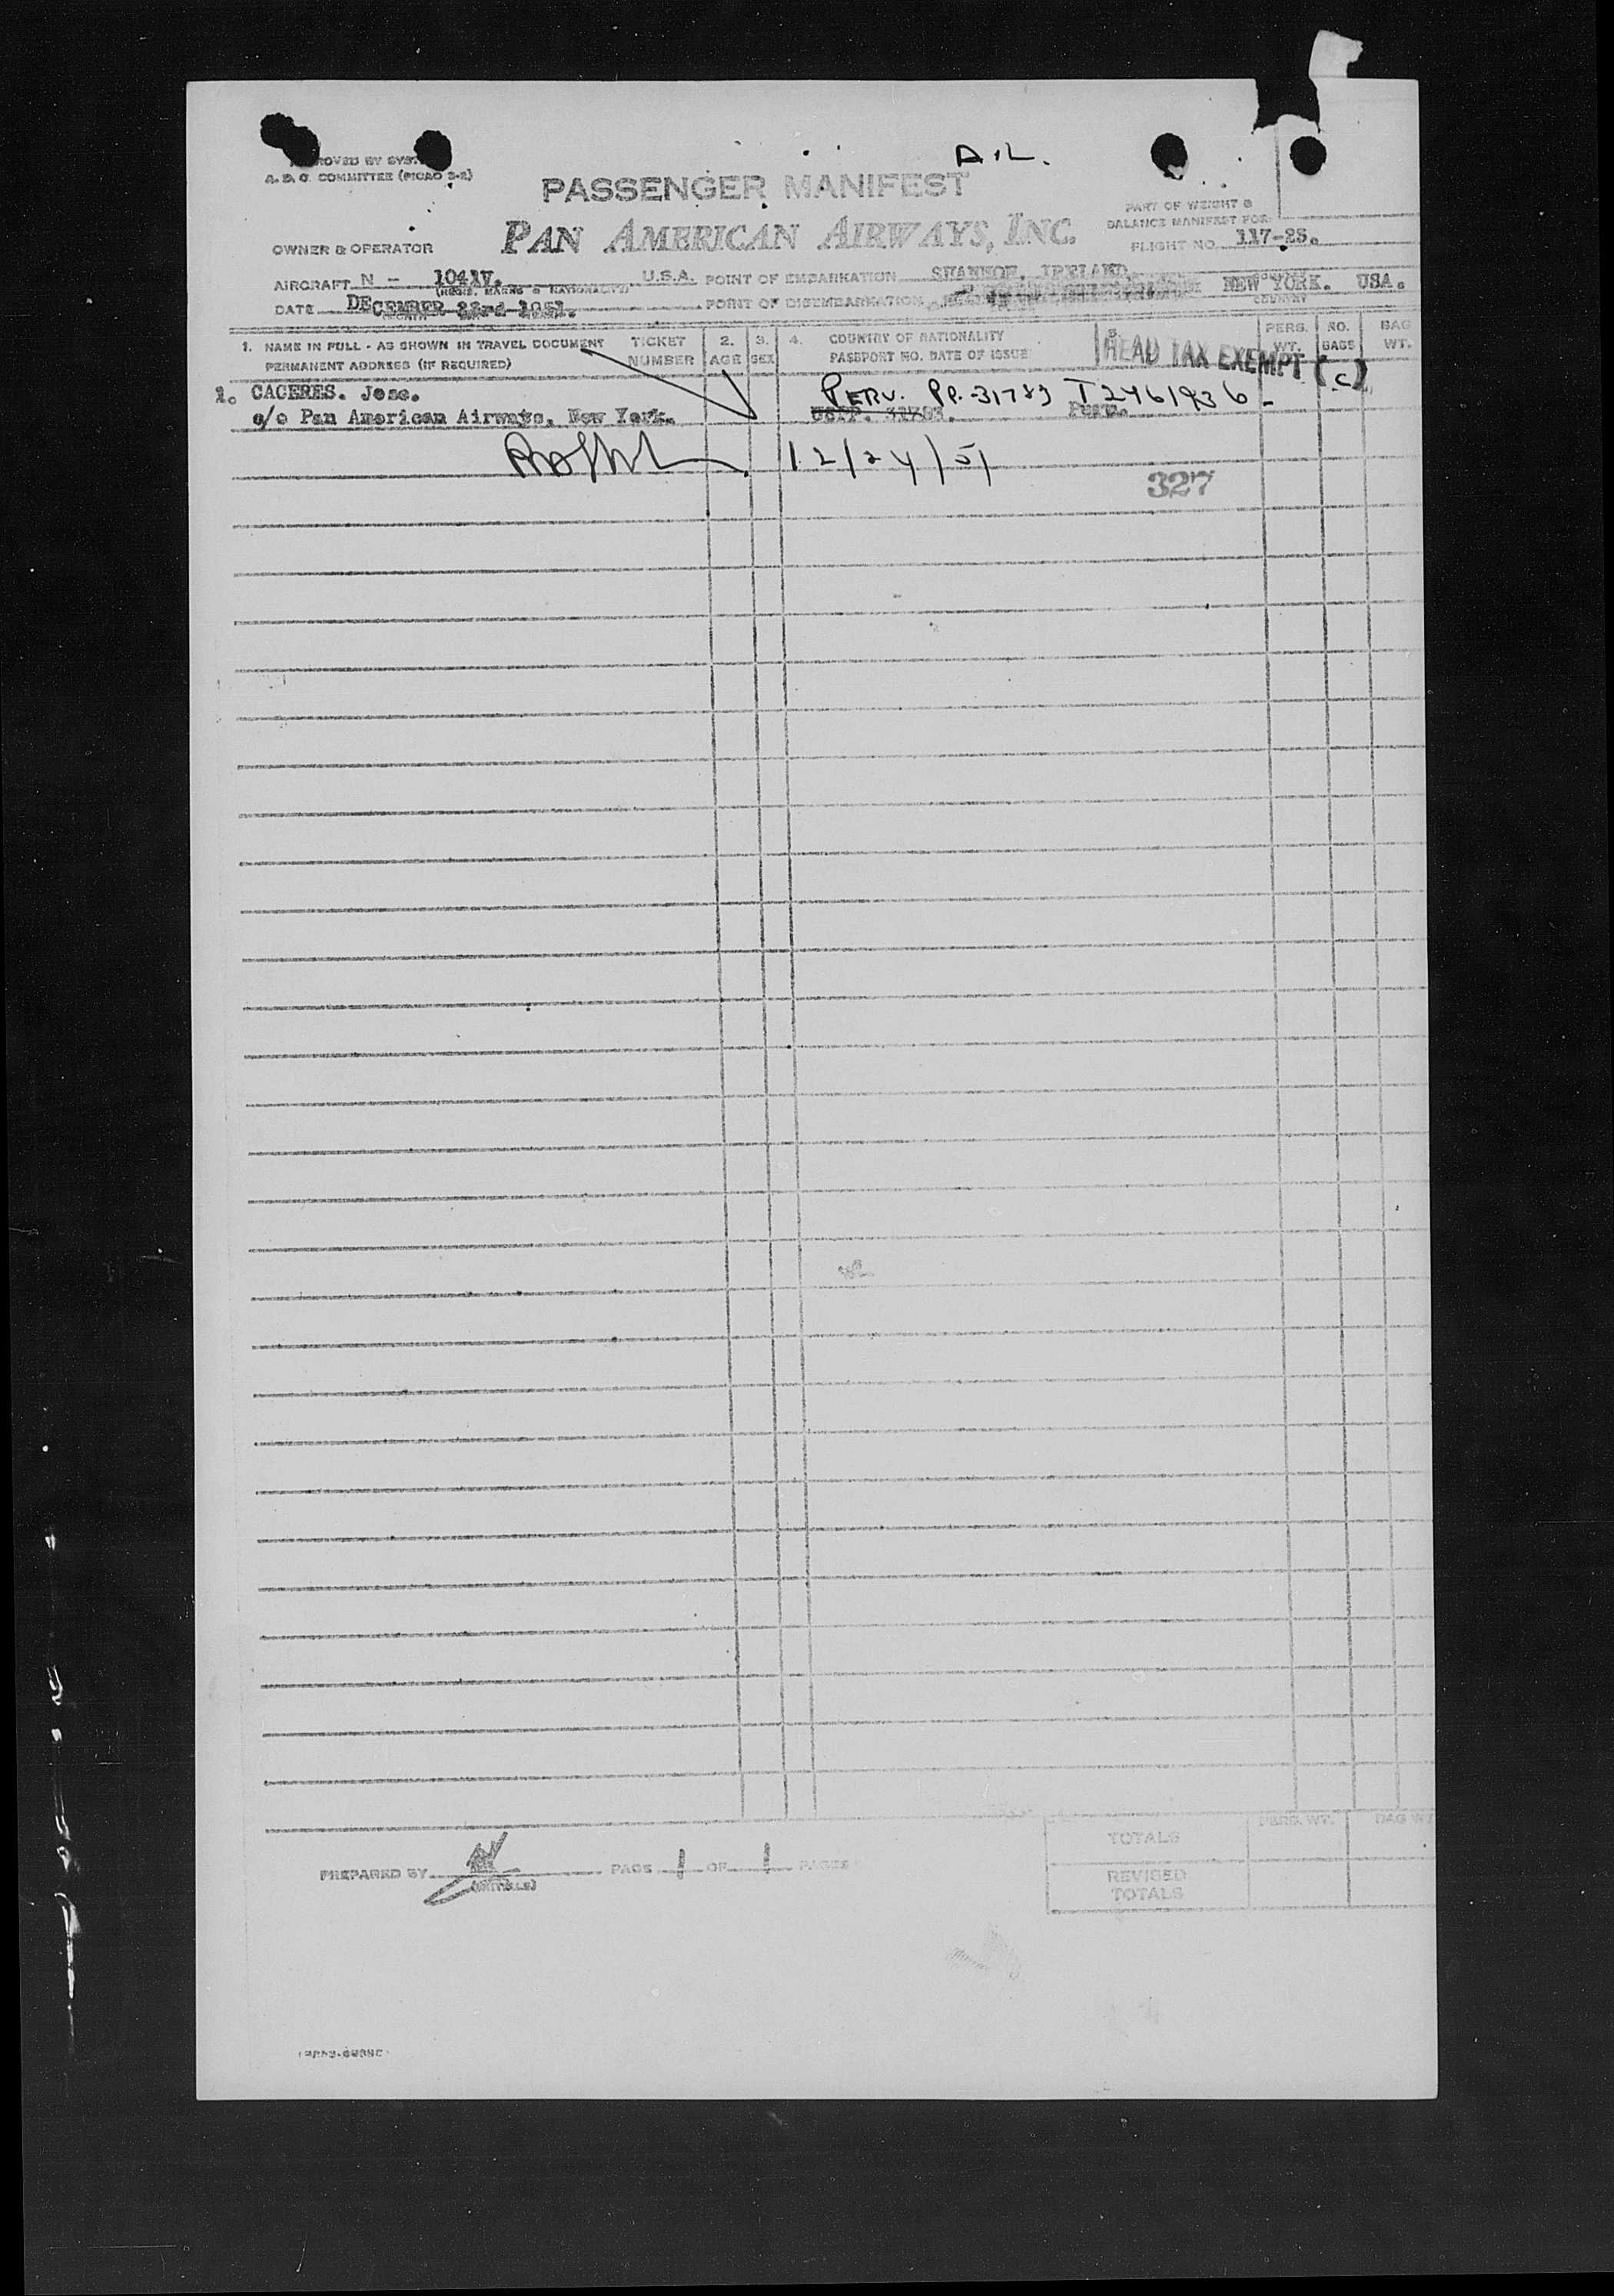 A.L.
COMMITTEE (PICAO 2-2)
PASSENGER MANIFEST
PART OF WEIGHT &
BALANCE MANIFEST FOR:
OWNER & OPERATOR
PAN AMERICAN AIRWAYS, INC.
FLIGHT NO. 117-25.
AIRCRAFT N - 1041V. U.S.A. POINT OF EMBARKATION SHANNON, IRELAND.
DATE DECEMBER 23rd 1951. POINT OF DISEMBARKATION NEW YORK. USA.
1. NAME IN FULL - AS SHOWN IN TRAVEL DOCUMENT
PERMANENT ADDRESS (IF REQUIRED)
TICKET
NUMBER
2.
AGE
3.
SEX
4. COUNTRY OF NATIONALITY
PASSPORT NO. DATE OF ISSUE
HEAD TAX EXEMPT (C)
PERS.
WT.
NO.
BAGS
BAG
WT.
1. CACERES. Jose.
PERU. PP.-31783 T2461936-
c/o Pan American Airways, New York.
Peru.
12/24/51
327
PREPARED BY
(INITIALS)
PAGE 1 OF 1 PAGES
TOTALS
REVISED
TOTALS
PERS. WT.
BAG WT